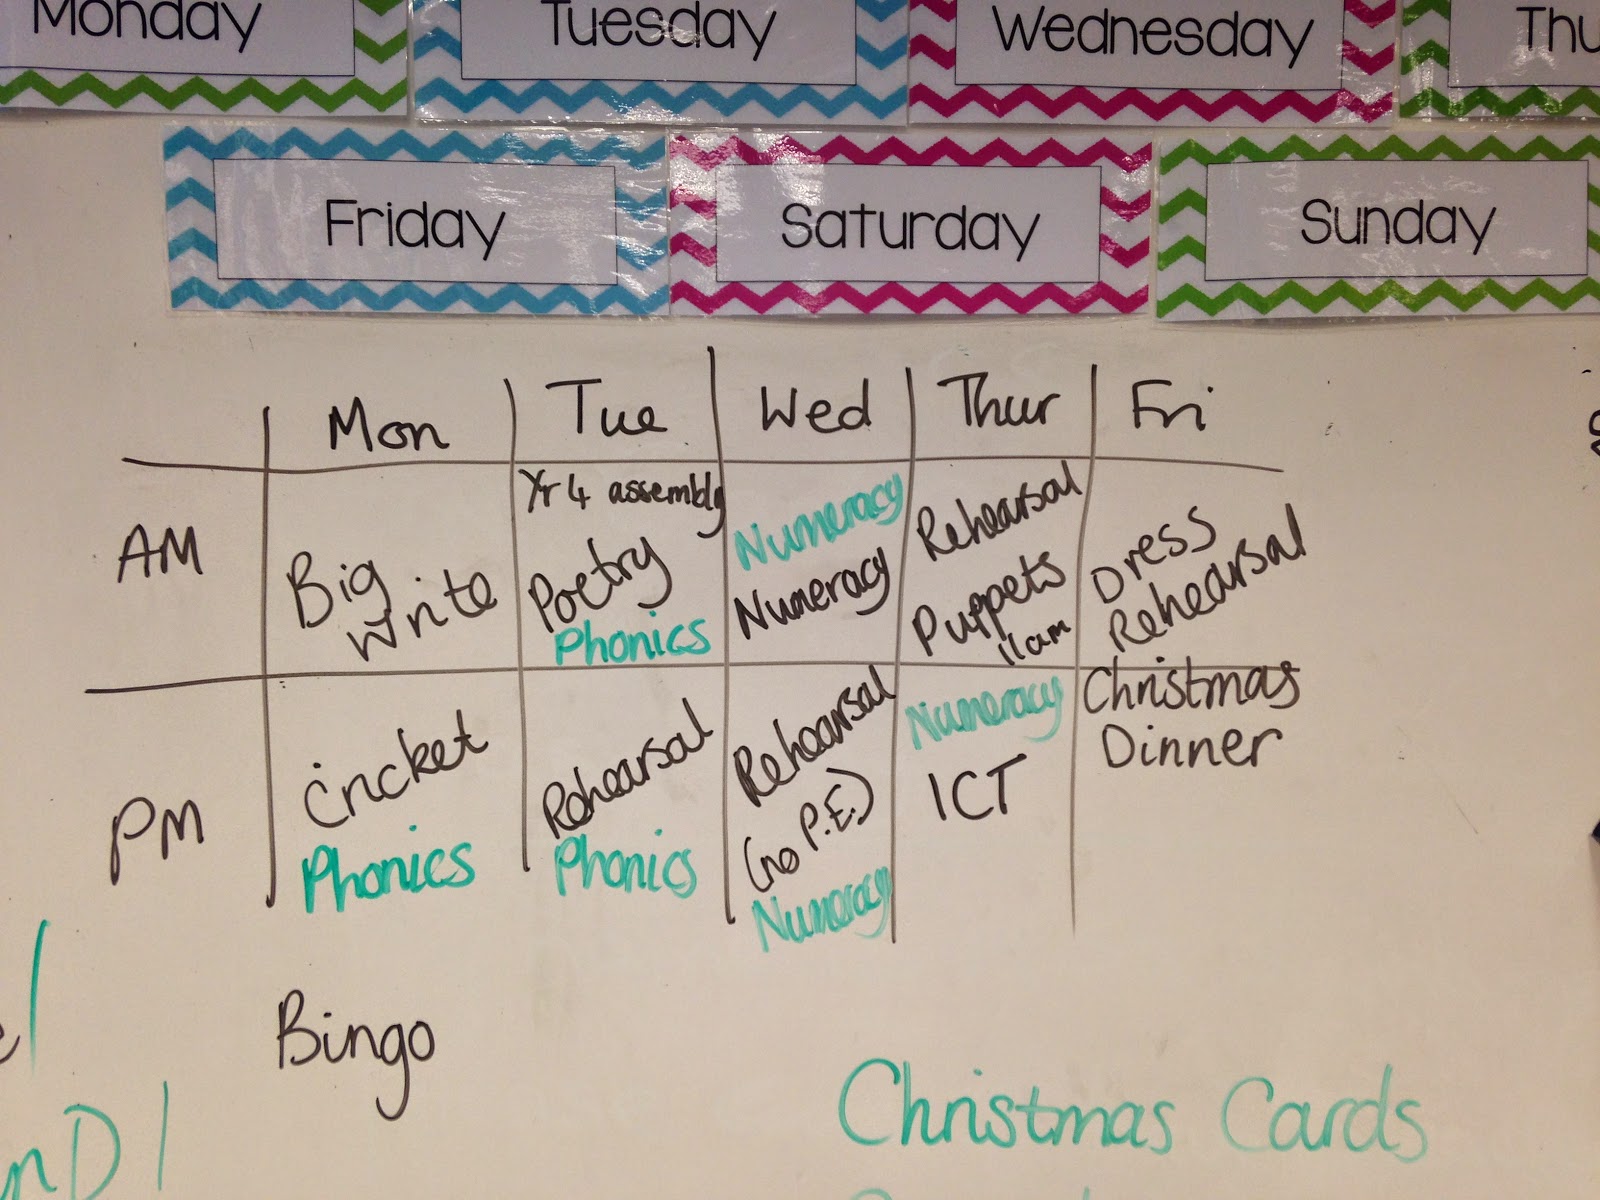 Monday Tuesday Wednesday Thu
Friday Saturday Sunday
Mon Tue Wed Thur Fri
AM
Big
Write
Yr 4 assembly
Poetry
Phonics
Numeracy
Numeracy
Rehearsal
Puppets
11am
Dress
Rehearsal
PM
Cricket
Phonics
Rehearsal
Phonics
Rehearsal
(no P.E.)
Numeracy
Numeracy
ICT
Christmas
Dinner
Bingo
Christmas Cards